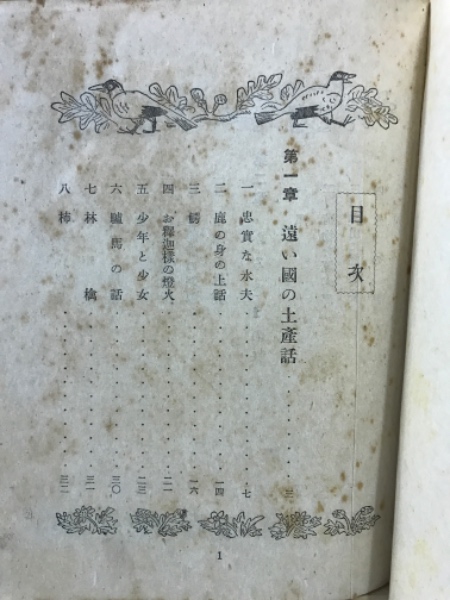 目次
第一章 遠い國の土產話 三
一 忠實な水夫 七
二 鹿の身の上話 一四
三 鰐 一六
四 お釋迦樣の燈火 二一
五 少年と少女 二三
六 驢馬の話 三〇
七 林檎 三一
八 柿 三二
1